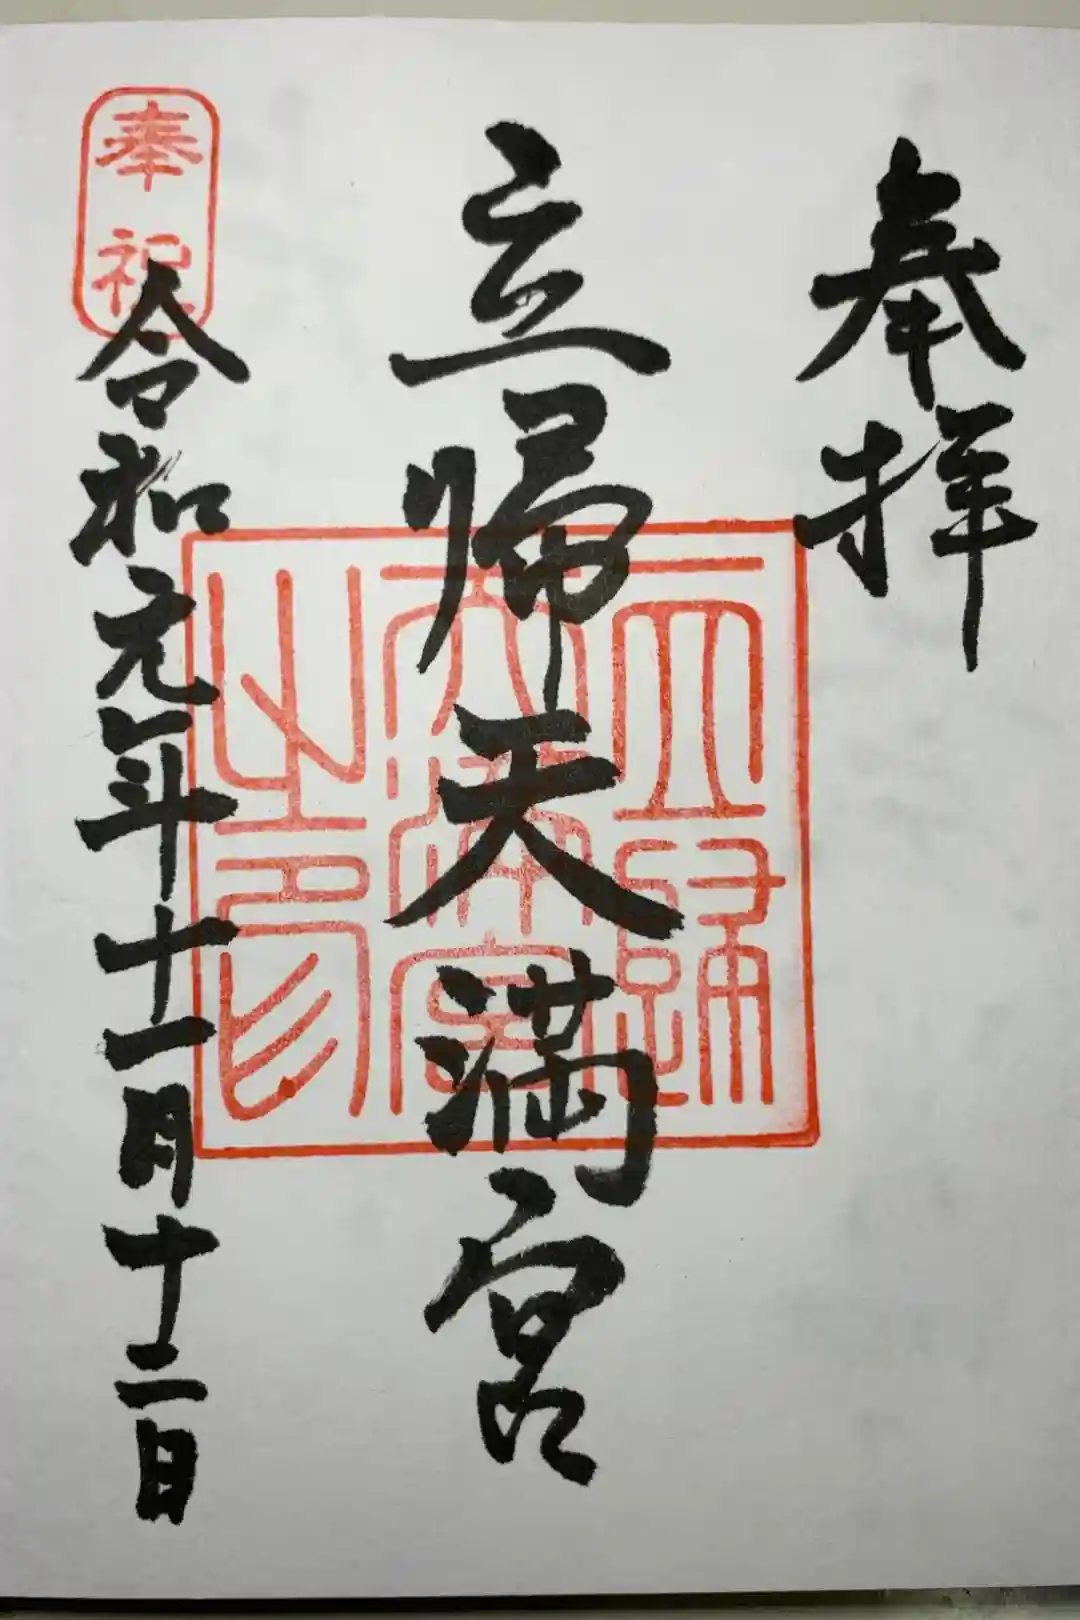 奉拝
立帰天満宮
奉祝
令和元年十一月十二日
立歸
天満宮
之印